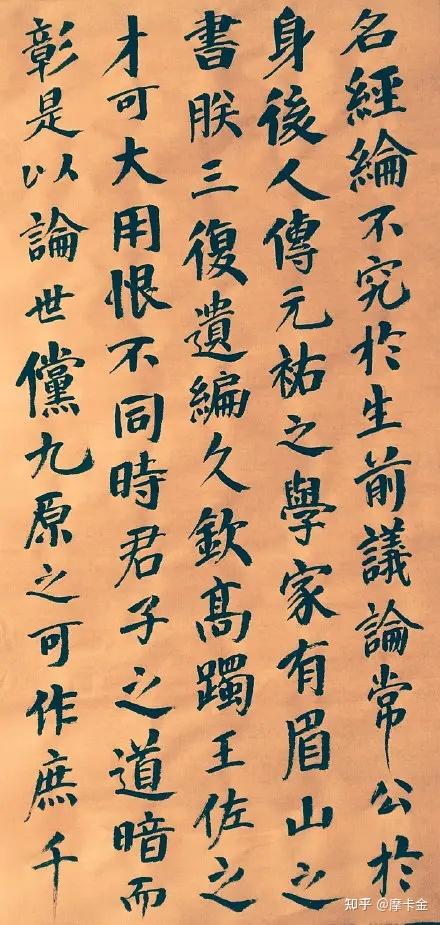 名經綸不究於生前議論常公於
身後人傳元祐之學家有眉山之
書朕三復遺編久欽高躅王佐之
才可大用恨不同時君子之道暗而
彰是以論世儻九原之可作庶千
知乎 @摩卡金